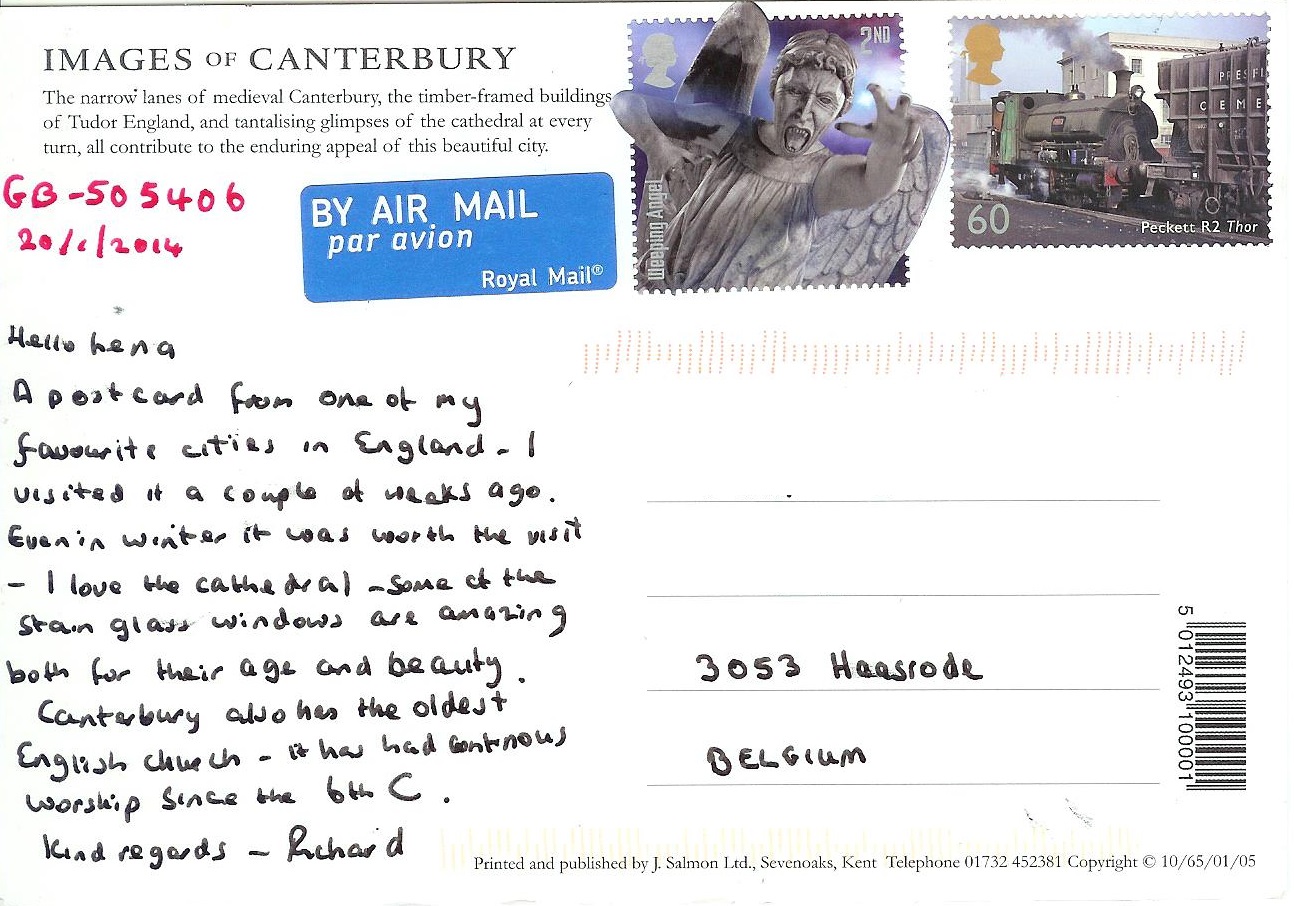 IMAGES OF CANTERBURY
The narrow lanes of medieval Canterbury, the timber-framed buildings
of Tudor England, and tantalising glimpses of the cathedral at every
turn, all contribute to the enduring appeal of this beautiful city.
GB-505406
20/1/2014
BY AIR MAIL
par avion
Royal Mail®
2ND
Weeping Angel
PRESFL
CEME
60
Peckett R2 Thor
Hello Lena
A postcard from one of my
favourite cities in England - I
visited it a couple of weeks ago.
Even in winter it was worth the visit
- I love the cathedral - some of the
stain glass windows are amazing
both for their age and beauty.
Canterbury also has the oldest
English church - it has had continous
worship since the 6th C.
Kind regards - Richard
3053 Haasrode
BELGIUM
5 012493 100001
Printed and published by J. Salmon Ltd., Sevenoaks, Kent Telephone 01732 452381 Copyright © 10/65/01/05